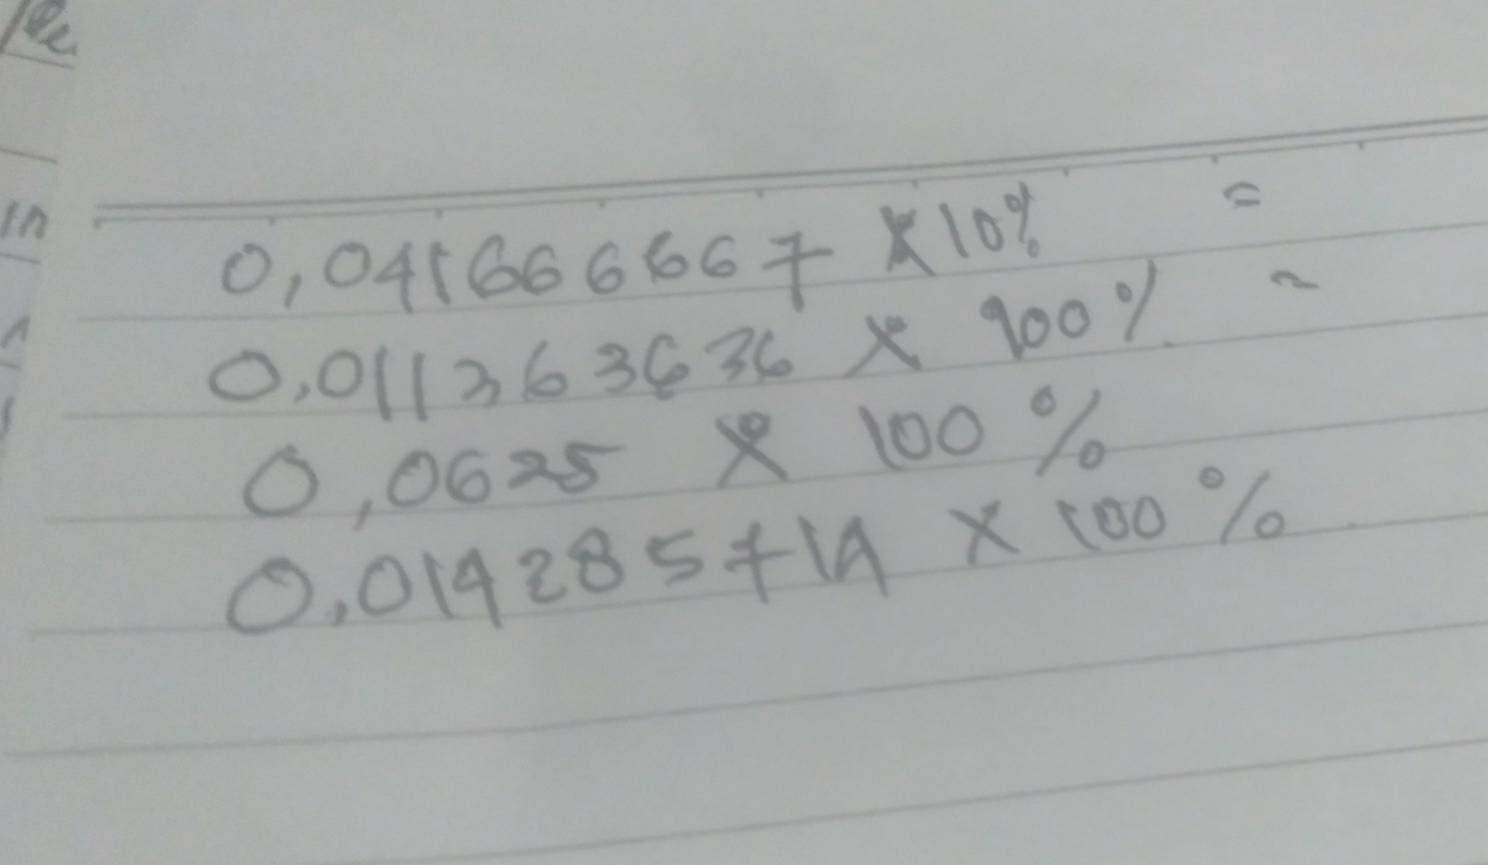 0,0416666667 x 10% =
0,011363636 x 100%
0,0625 x 100%
0,014285714 x 100%